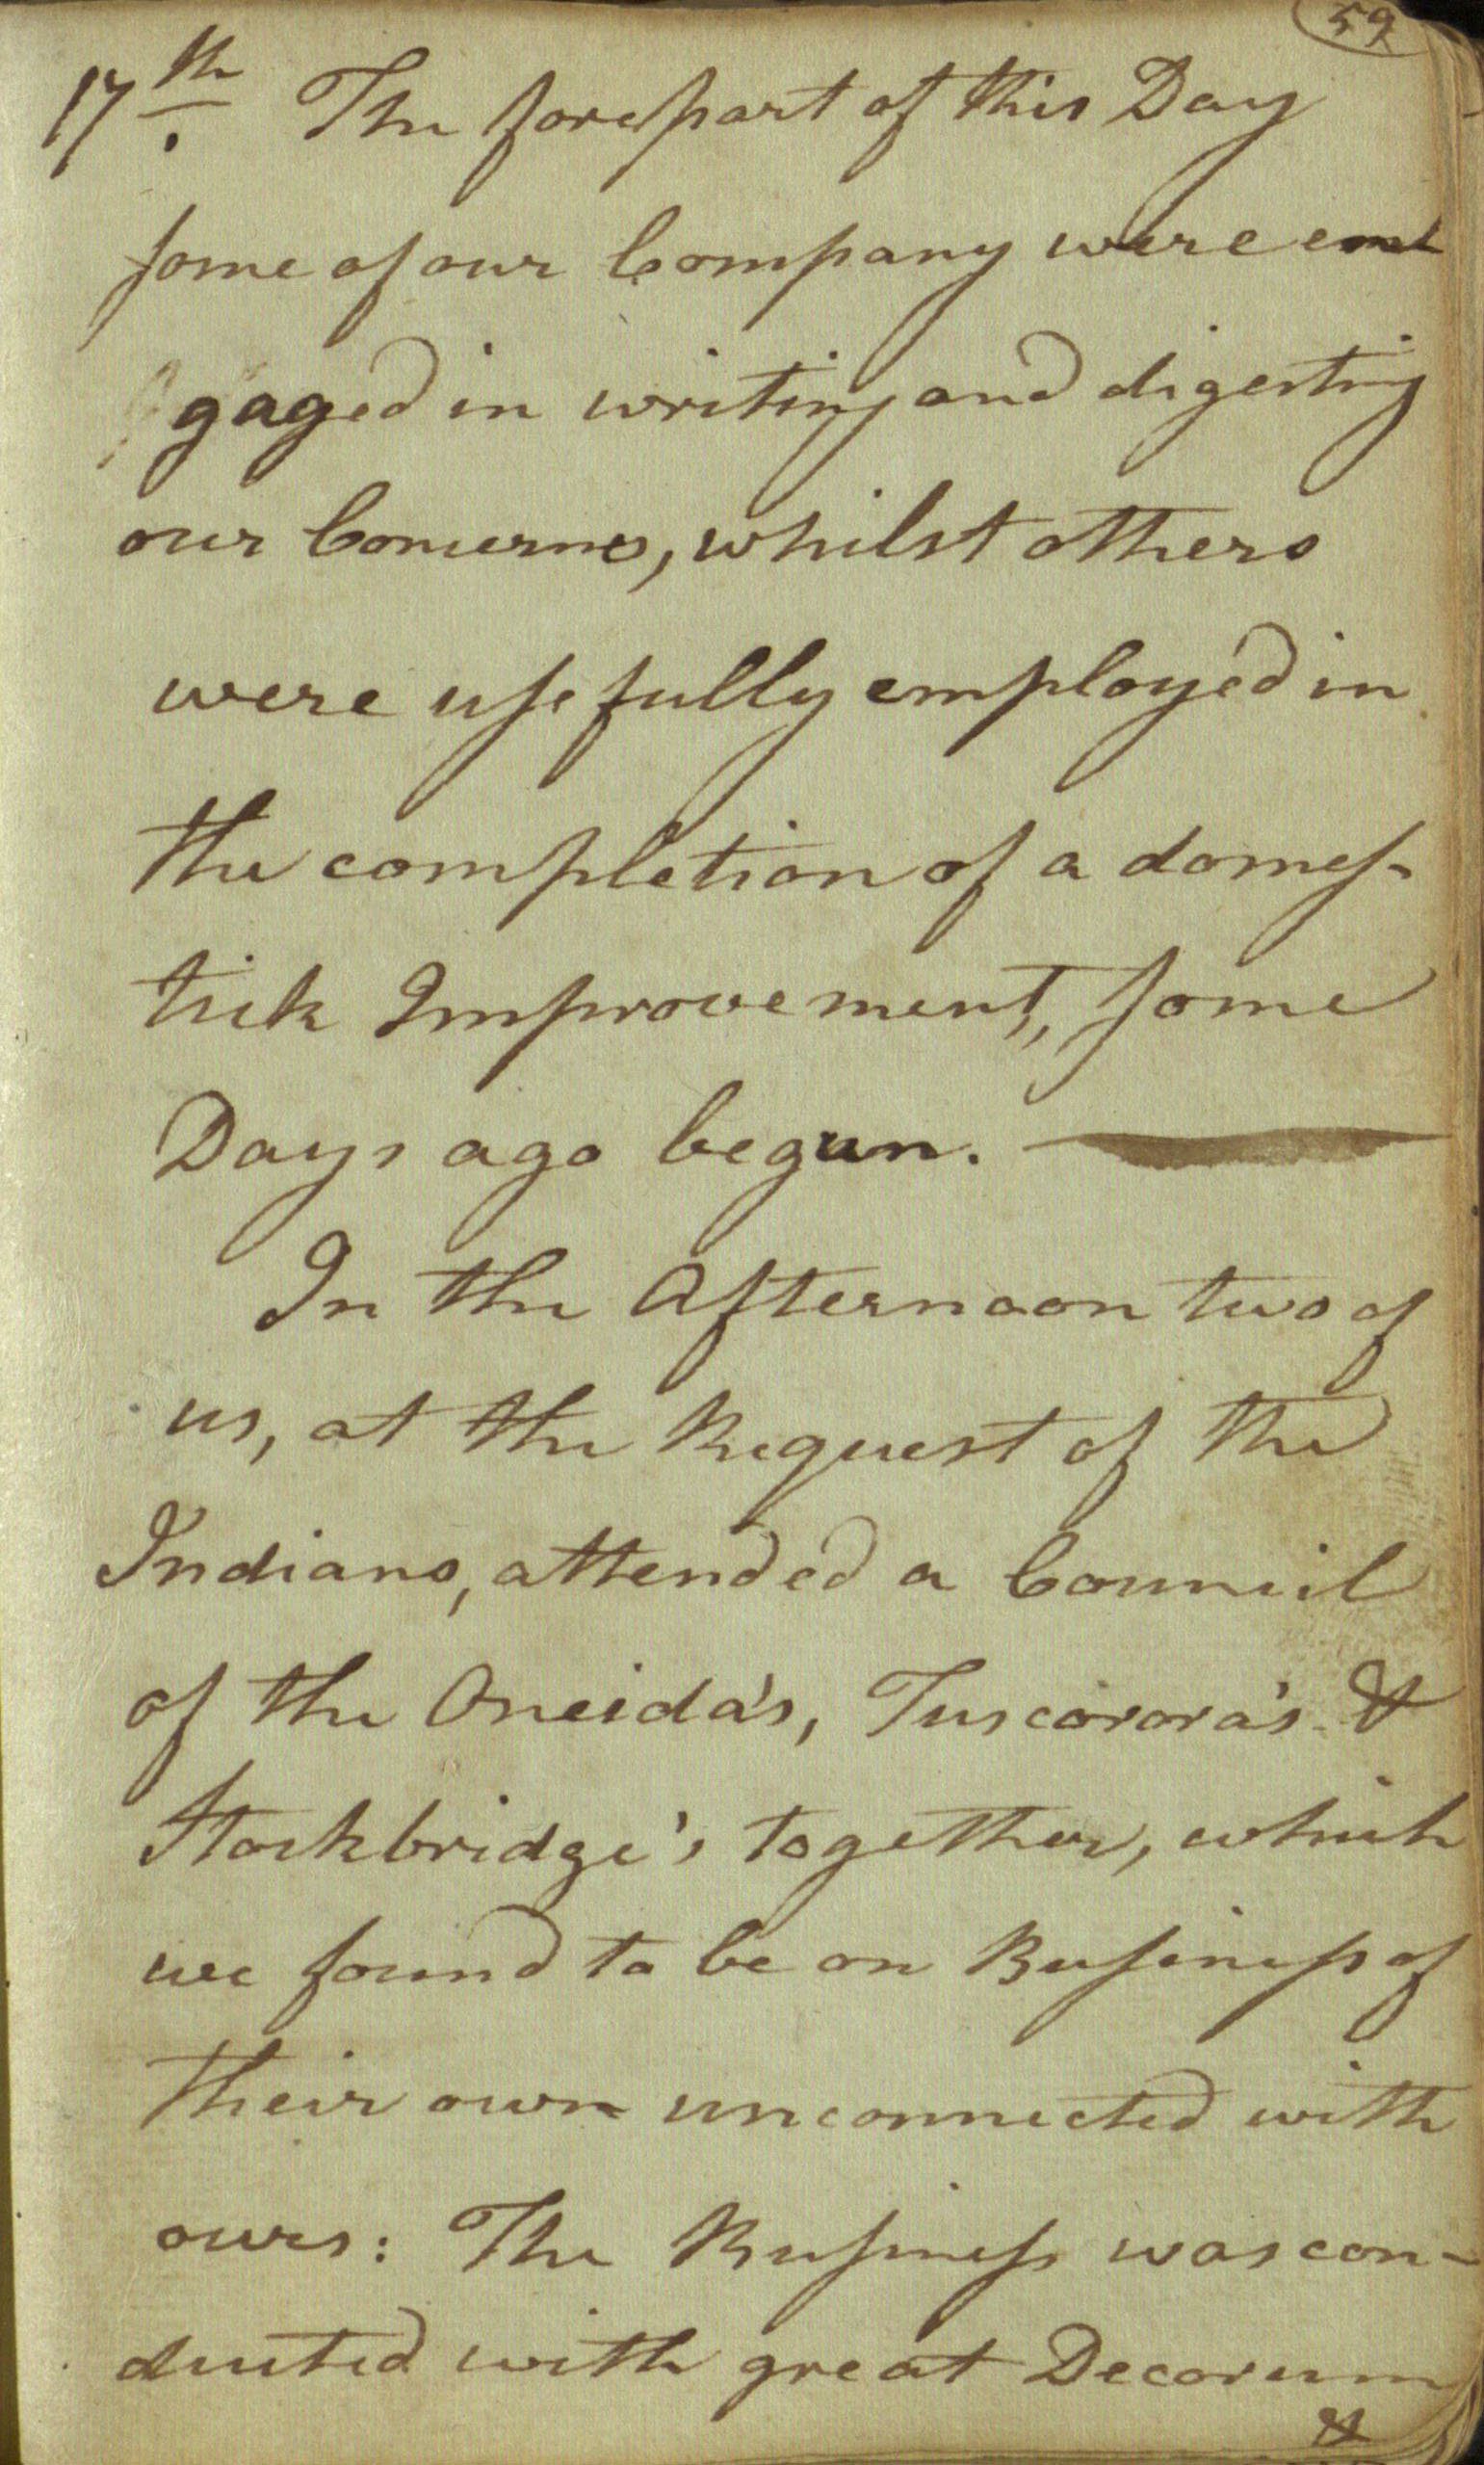 59
17th. The forepart of this Day
some of our Company were en-
gaged in writing and digesting
our Concerns, whilst others
were usefully employed in
the completion of a domes-
tick Improvement, some
Days ago begun.
In the Afternoon two of
us, at the Request of the
Indians, attended a Council
of the Oneida's, Tuscorora's &
Stockbridge's together, which
we found to be on Business of
their own unconnected with
ours: The Business was con-
ducted with great Decorum
&